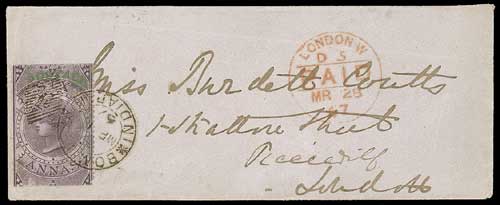 LONDON.W
D 5
PAID
MR 28
67
Miss Burdett Coutts
1 Stratton Street
Piccadilly
London
INDIA
ANNAS